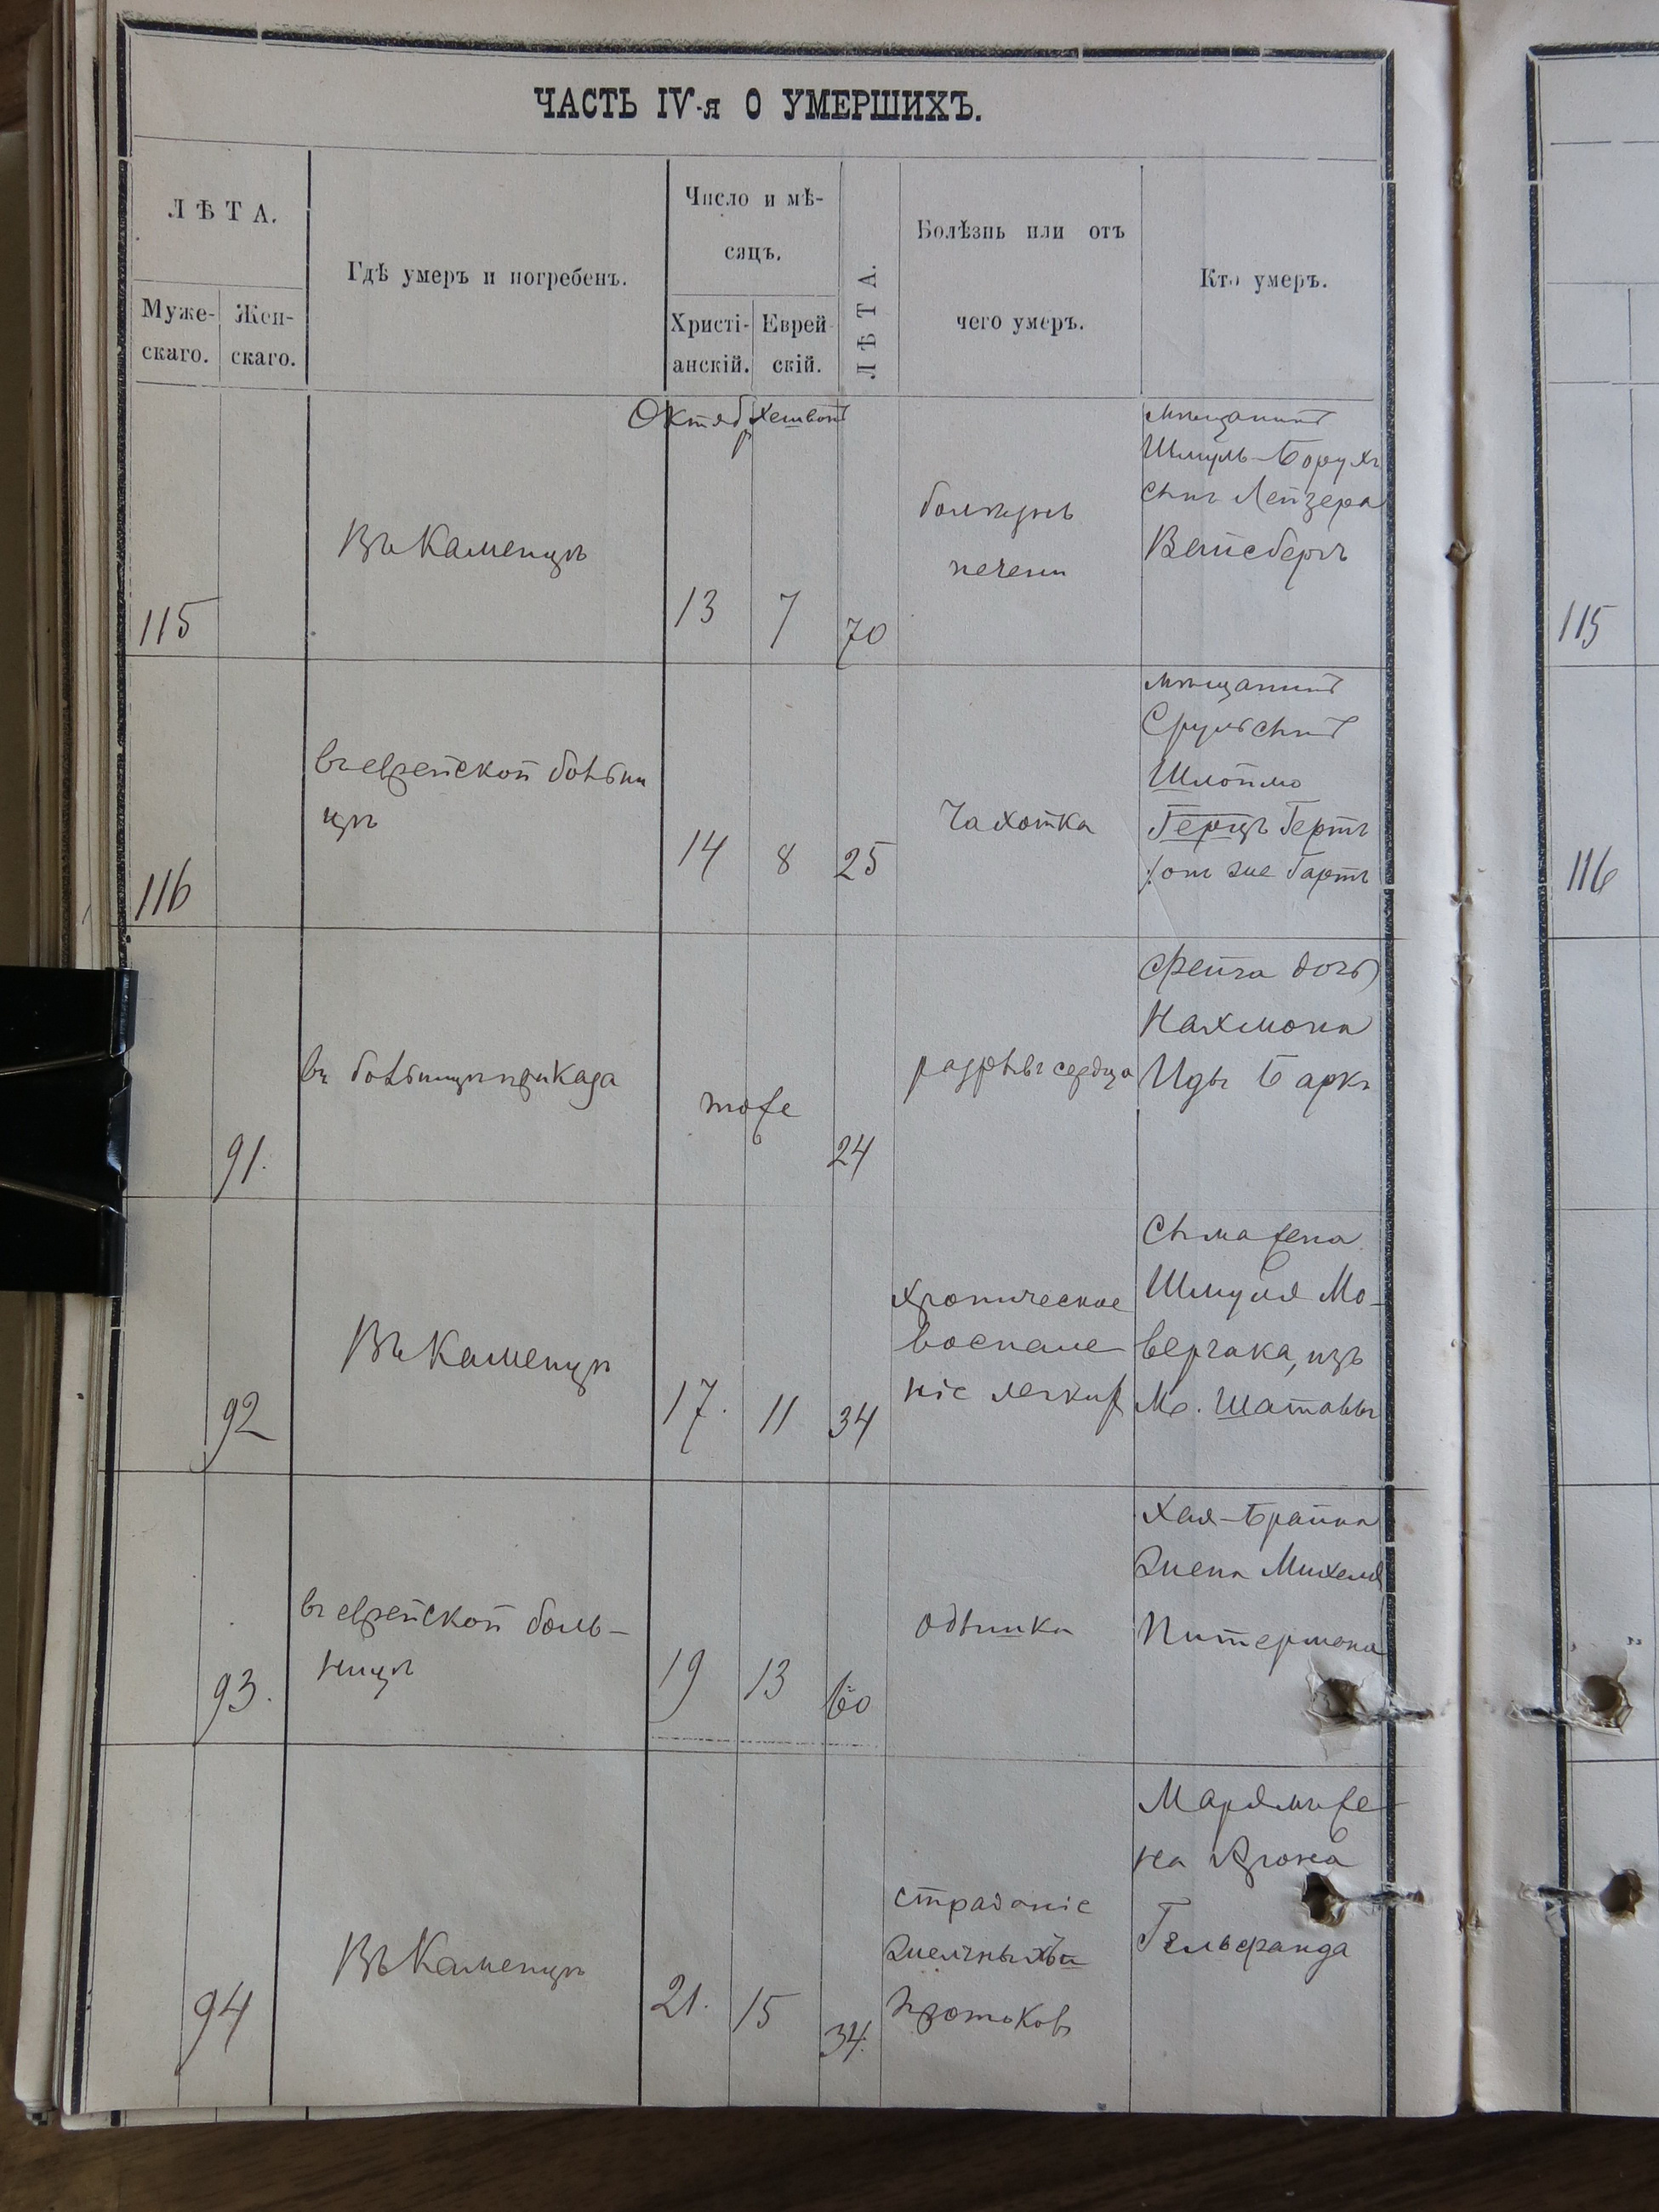 ЧАСТЬ IV-я О УМЕРШИХЪ.
ЛѢТА.
Муже-
скаго.
Жен-
скаго.
Гдѣ умеръ и погребенъ.
Число и мѣ-
сяцъ.
Христі-
анскій.
Еврей-
скій.
ЛѢТА.
Болѣзнь или отъ
чего умеръ.
Кто умеръ.
Октябр Хешвонъ
115
Въ Каменцѣ
13 7 70
болѣзнь
печени
мѣщанинъ
Шмуль-Борухъ
сынъ Лейзера
Вейсберъ
115
116
въ еврейской больни
цѣ
14 8 25
Чахотка
мѣщанинъ
Сруль сынъ
Шлоймо
Герцъ Гертъ
онъ же Гартъ
116
91.
въ больницѣ приказа
тоже
24
разрывъ сердца
Фейга дочь
Нахмона
Иды Баркъ
92
Въ Каменцѣ
17. 11 34
хроническое
воспале
ніе легкихъ
Сыма жена
Шмуля Мо-
вергака, изъ
М. Шатавы
93.
въ еврейской боль-
ницѣ
19 13 60
одышка
Хая-Брайна
жена Михеля
Питермона
94
Въ Каменцѣ
21. 15 34.
страданіе
желчныхъ
протоковъ
Марямъ же-
на Арона
Гельфанда